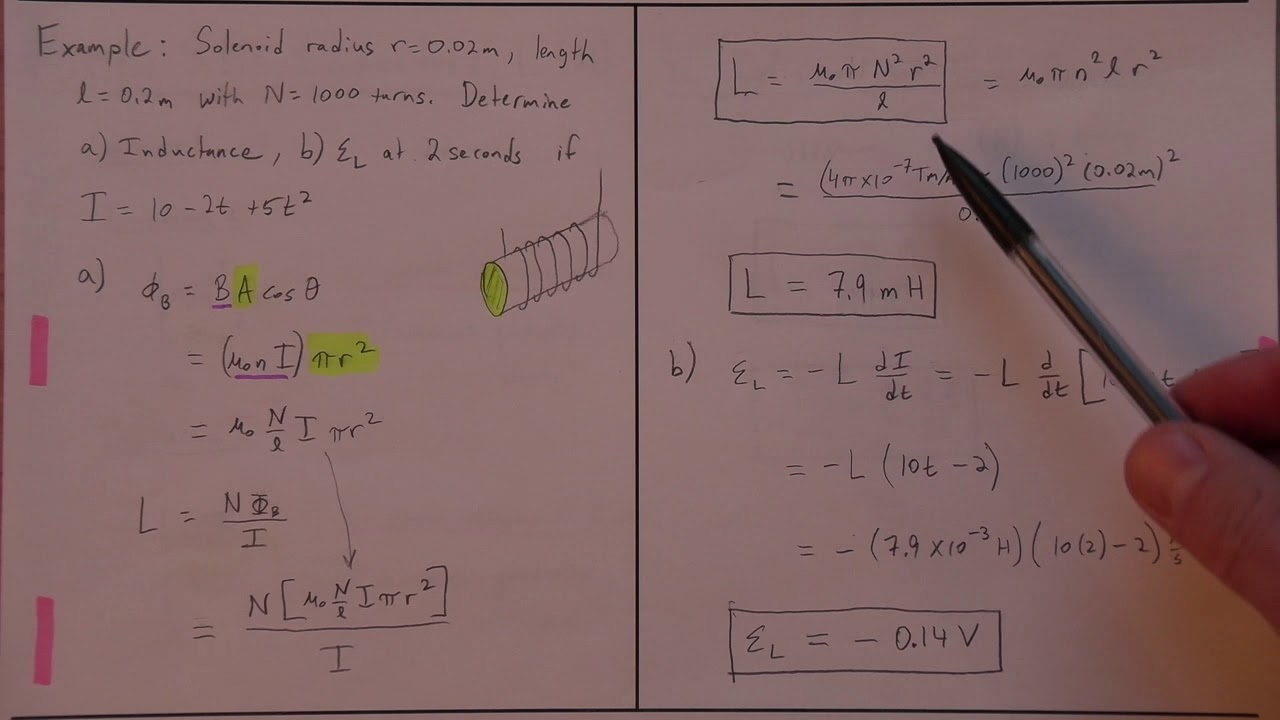 Example: Solenoid radius r=0.02m, length
l=0.2m with N=1000 turns. Determine
a) Inductance, b) ℰL at 2 seconds if
I = 10-2t+5t²
a) ΦB = BA cosθ
= (μ₀nI) πr²
= μ₀ N/l I πr²
L = NΦB/I
= N[μ₀ N/l Iπr²]/I
L = μ₀πN²r²/l = μ₀πn²lr²
= (4π×10⁻⁷Tm/ (1000)²(0.02m)²/0.
L = 7.9 mH
b) ℰL = -L dI/dt = -L d/dt [
= -L(10t-2)
= -(7.9×10⁻³H)(10(2)-2)
ℰL = -0.14V